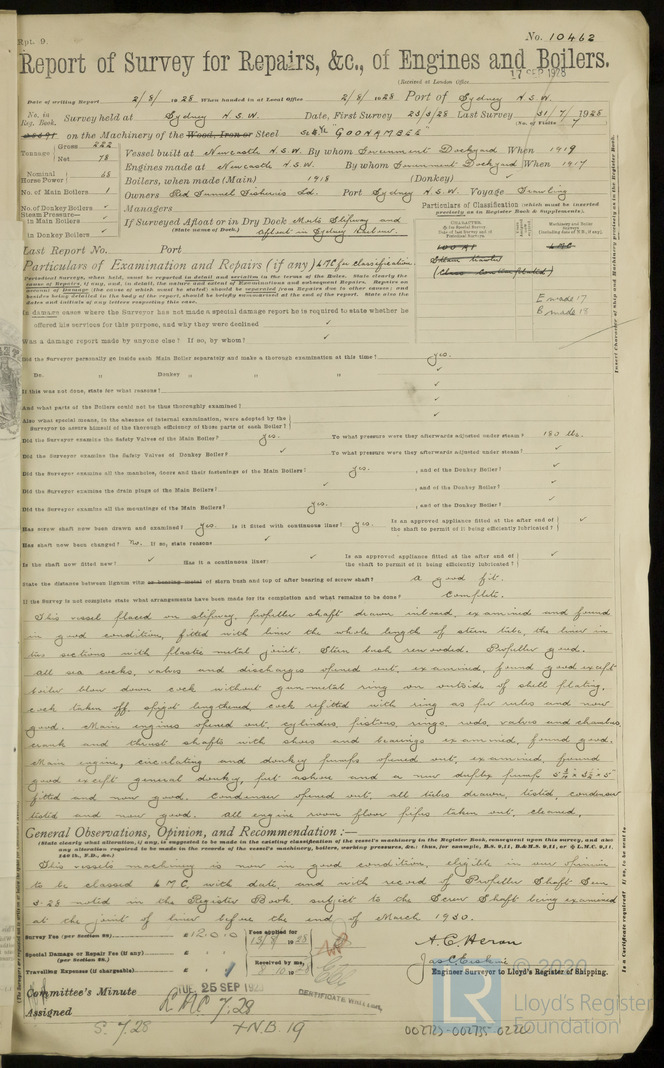 Rpt. 9.
No. 10462
Report of Survey for Repairs, &c., of Engines and Boilers.
(Received at London Office
17 SEP 1928
Date of writing Report 2/8/1928 When handed in at Local Office 2/8/1928 Port of Sydney N.S.W.
No. in Reg. Book. Survey held at Sydney N.S.W. Date, First Survey 23/3/28 Last Survey 31/7/1928
(No. of Visits 7
on the Machinery of the Wood, Iron or Steel "GOORAMBEE"
Tonnage Gross 222
Net 78
Vessel built at Newcastle N.S.W. By whom Government Dockyard When 1919
Engines made at Newcastle N.S.W. By whom Government Dockyard When 1917
Nominal Horse Power 68
Boilers, when made (Main) 1918 (Donkey) ✓
No. of Main Boilers 1
Owners Red Funnel Fisheries Ltd. Port Sydney N.S.W. Voyage Trawling
No. of Donkey Boilers ✓
Managers
Steam Pressure—
in Main Boilers ✓
in Donkey Boilers ✓
If Surveyed Afloat or in Dry Dock Morts Slipway and
(State name of Dock.) afloat in Sydney Harbour.
Particulars of Classification (which must be inserted
precisely as in Register Book & Supplements).
Last Report No. Port
Particulars of Examination and Repairs (if any) LMC for classification
100 A1
LMC
Steam Trawler
E made 17
B made 18
In damage cases where the Surveyor has not made a special damage report he is required to state whether he
offered his services for this purpose, and why they were declined ✓
Was a damage report made by anyone else? If so, by whom? ✓
Did the Surveyor personally go inside each Main Boiler separately and make a thorough examination at this time? yes.
Do. „ Donkey „ „ „ ✓
If this was not done, state for what reasons? ✓
And what parts of the Boilers could not be thus thoroughly examined? ✓
Also what special means, in the absence of internal examination, were adopted by the
Surveyor to assure himself of the thorough efficiency of those parts of each Boiler? ✓
Did the Surveyor examine the Safety Valves of the Main Boiler? yes. To what pressure were they afterwards adjusted under steam? 180 lbs.
Did the Surveyor examine the Safety Valves of Donkey Boiler? ✓ To what pressure were they afterwards adjusted under steam? ✓
Did the Surveyor examine all the manholes, doors and their fastenings of the Main Boilers? yes. , and of the Donkey Boiler? ✓
Did the Surveyor examine the drain plugs of the Main Boilers? ✓ , and of the Donkey Boiler? ✓
Did the Surveyor examine all the mountings of the Main Boilers? yes. , and of the Donkey Boiler? ✓
Has screw shaft now been drawn and examined? yes. Is it fitted with continuous liner? yes. Is an approved appliance fitted at the after end of the shaft to permit of it being efficiently lubricated? ✓
Has shaft now been changed? No. If so, state reasons ✓
Is the shaft now fitted new? ✓ Has it a continuous liner? ✓ Is an approved appliance fitted at the after end of the shaft to permit of it being efficiently lubricated? ✓
State the distance between lignum vitæ or bearing metal of stern bush and top of after bearing of screw shaft? A good fit.
If the Survey is not complete state what arrangements have been made for its completion and what remains to be done? Complete.
This vessel placed on slipway, propeller shaft drawn inboard, examined and found
in good condition, fitted with liner the whole length of stern tube, the liner in
two sections with plastic metal joint. Stern bush rewooded. Propeller good.
All sea cocks, valves and discharges opened out, examined, found good except
boiler blow down cock without gunmetal ring on outside of shell plating.
Cock taken off, spigot lengthened, cock refitted with ring as per rules and now
good. Main engines opened out, cylinders, pistons, rings, rods, valves and chambers,
crank and thrust shafts with shoes and bearings examined, found good.
Main engine, circulating and donkey pumps opened out, examined, found
good except general donkey, put ashore and a new duplex pump
fitted and now good. Condenser opened out, all tubes drawn, tested, condenser
tested and now good. All engine room floor pipes taken out, cleaned,
General Observations, Opinion, and Recommendation:—
(State clearly what alteration, if any, is suggested to be made in the existing classification of the vessel's machinery in the Register Book, consequent upon this survey, and also
any alteration required to be made in the records of the vessel's machinery, boilers, working pressures, &c.: thus, for example, B.S. 9,11, B.&M.S. 9,11, or L.M.C. 9,11,
140 lb., F.D., &c.)
This vessels machinery is now in good condition, eligible in our opinion
to be classed LMC, with date, and with record of Propeller Shaft Seen
3.28 noted in the Register Book subject to the Screw Shaft being examined
at the joint of liner before the end of March 1930.
Survey Fee (per Section 28) £12.0.0
Fees applied for
13/8/1928
Special Damage or Repair Fee (if any)
(per Section 28).
Received by me,
Travelling Expenses (if chargeable)
A. C. Heron
Engineer Surveyor to Lloyd's Register of Shipping.
Committee's Minute
TUE. 25 SEP 1928
CERTIFICATE WRITTEN
Assigned LMC 7.28
S. 7.28 +N.B. 19
© 2020
LR
Lloyd's Register
Foundation
002723-002735-0220